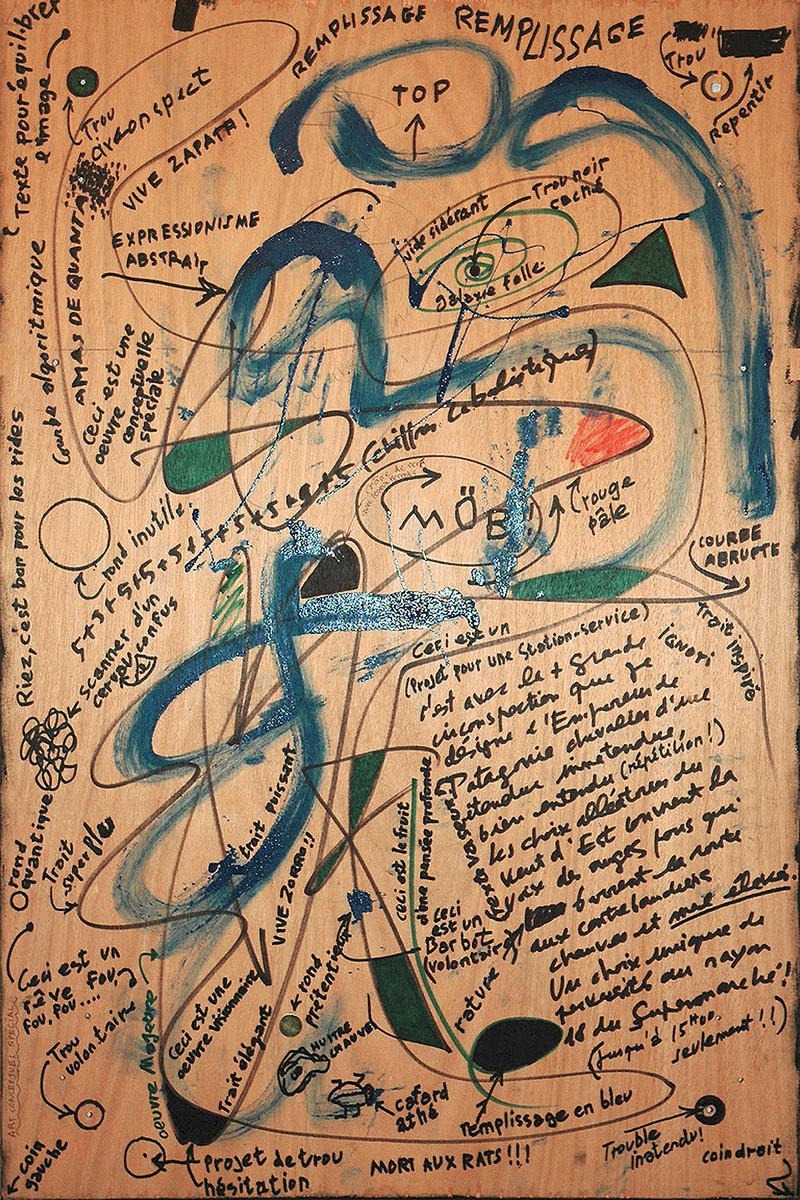 REMPLISSAGE
REMPLISSAGE
Texte pour équilibrer
l'image
Trou
Trou
Repentir
TOP
VIVE ZAPATA!
EXPRESSIONISME
ABSTRAIT
AMAS DE QUANTA
Courbe algorithmique
Vide sidérant
Trou noir
caché
Galaxie folle
Ceci est une
oeuvre
conceptuelle
speciale
Riez, c'est bon pour les rides
rond inutile
5+3+5+5+5+5+5+5
(chiffres cabalistiques)
MÖB!
rouge
pâle
COURBE
ABRUPTE
Trait inspiré
scanner d'un
cerveau confus
Ceci est un
(Projet pour une Station-service)
c'est avec la + grande
circonspection que je
désigne l'Empereur de
Patagonie
bien entendu (répétition!)
les choix aléatoires du
Vent d'Est ouvrent la
voix de
aux contrebandiers
chauves et mal
Un choix unique de
au rayon
18 du Supermarché!
(Jusqu'à 15H00
seulement!!)
rond
quantique
Trait
superflu
trait puissant
VIVE ZORRO!!
ceci est le fruit
d'une pensée profonde
ceci
est un
Barbot
(volontaire)
rature
Ceci est un
rêve fou,
fou, fou....
Trou
volontaire
oeuvre Majeure
Ceci est une
oeuvre visionnaire
Trait élégant
rond
prétentieux
HUITRE
CHAUVE
cafard
athé
remplissage en bleu
ART CONCEPTUEL SPECIAL
coin
gauche
Projet de trou
hésitation
MORT AUX RATS!!!
Trouble
inatendu!
coin droit